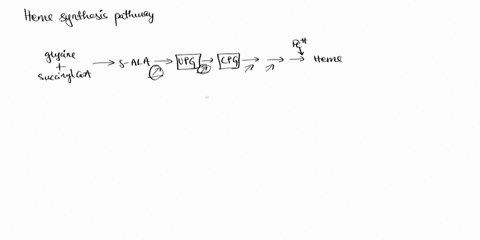 Heme synthesis pathway
glycine + Succinyl CoA → δ-ALA → UPG → CPG → → → Heme
Fe⁺⁺